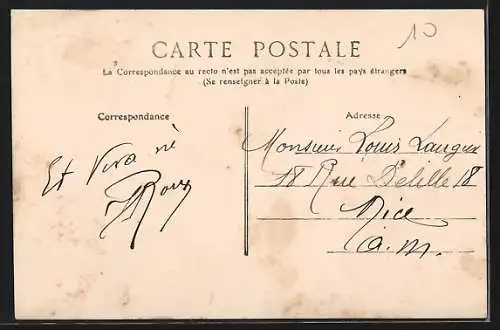 10
CARTE POSTALE
La Correspondance au recto n'est pas acceptée par tous les pays étrangers
(Se renseigner à la Poste)
Correspondance
Et Viva nè
Roux
Adresse
Monsieur Louis
18 Rue Delille 18
Nice
a.m.